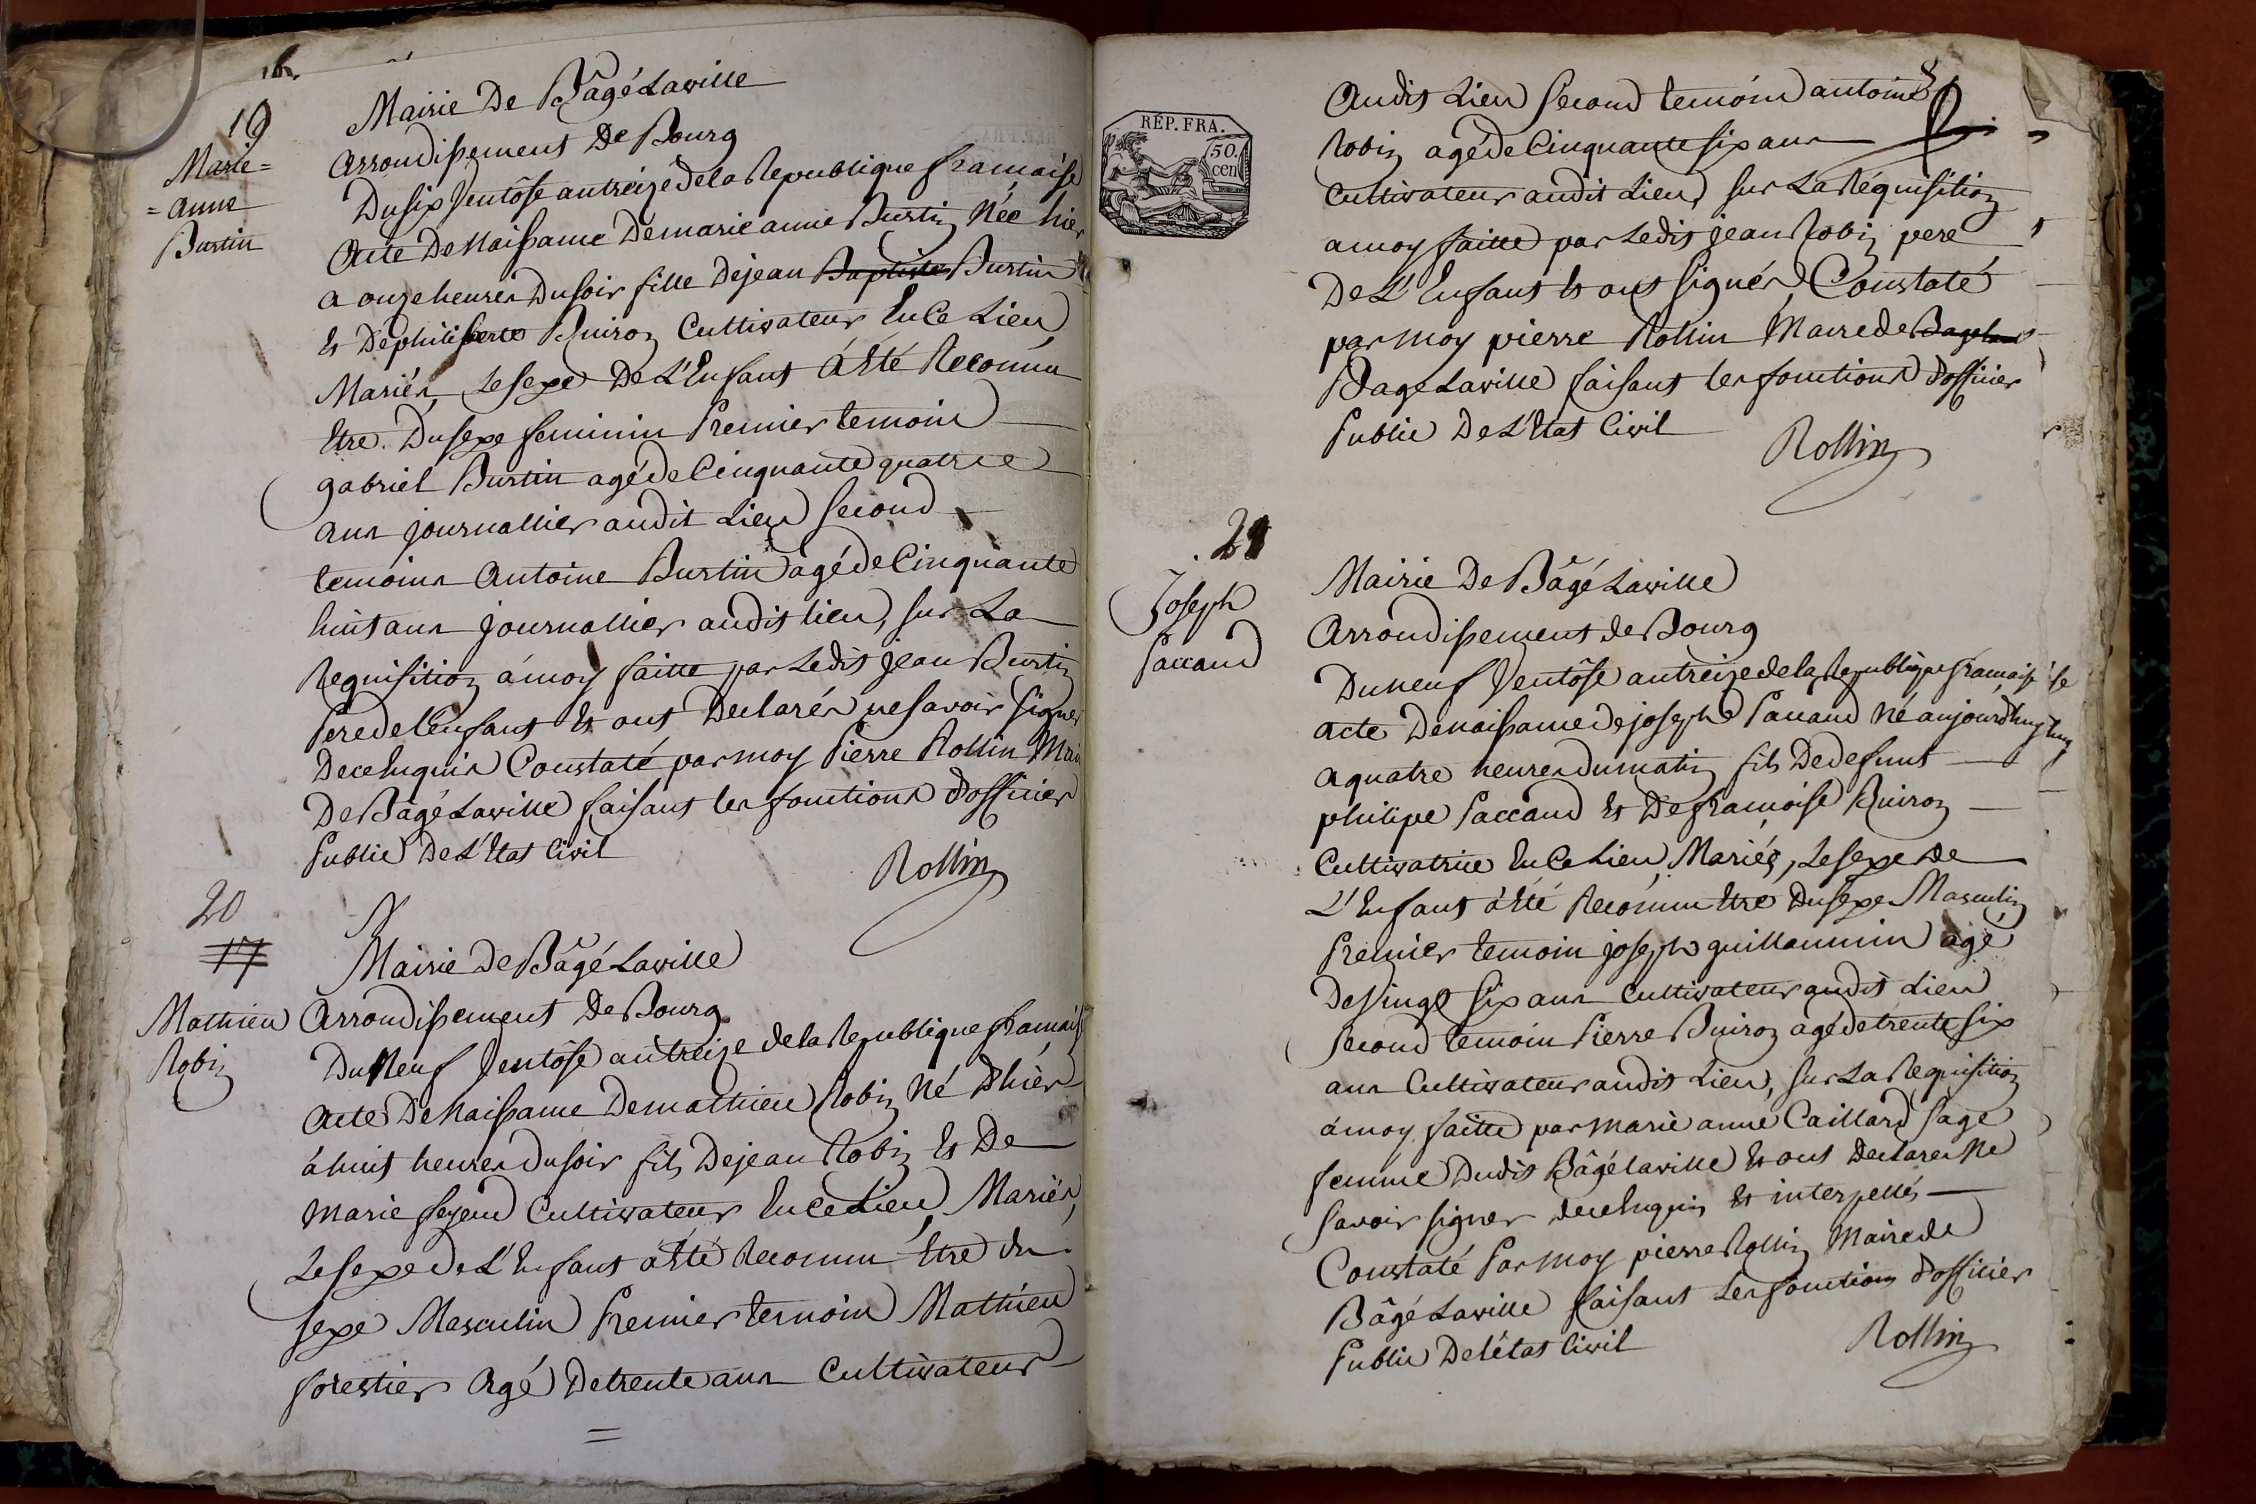 19
Marie=
=anne
Burtin
Mairie De Bâgé Laville
arrondissement De Bourg
Du six Ventôse an treize de la Republique francaise
Acte De Naissance De marie anne Burtin Née hier
a onze heures Du soir fille De jean Baptiste Burtin
Et De philiberte Buiron Cultivateur En Ce Lieu
Mariés, Le sexe De L'Enfant à Eté Reconnu
Etre Du sexe feminin Premier temoin
gabriel Burtin agé de Cinquante quatre
ans journallier audit Lieu second
temoins Antoine Burtin agé de Cinquante
huit ans journallier audit lieu, sur La
Requisition à moy faitte par Ledit jean Burtin
Pere de l'enfant Et ont Declarés ne savoir signer
De ce Enquis Constaté par moy Pierre Rollin Maire
De Bâgé Laville faisant les fonctions d'officier
Public De L'Etat Civil
Rollin
20
17
Mathieu
Robin
Mairie De Bâgé Laville
Arrondissement De Bourg
Du Neuf Ventôse an treize de la Republique francaise
Acte De Naissance De mathieu Robin Né D'hièr
à huit heures Du soir fils De jean Robin Et De
Marie feyeud Cultivateur En Ce Lieu, Mariés,
Le sexe De L'Enfant à Eté Reconnu Etre du
sexe Masculin Premier temoin Mathieu
forestier Agé De trente ans Cultivateur
Audit Lieu second temoin antoine
Robin agé de Cinquante six ans
Cultivateur audit Lieu, sur La Réquisition
a moy faitte par Ledit jean Robin pere
De L'Enfant Et ont signés Constaté
par moy pierre Rollin Maire de Bagelav
Bagé Laville faisant les fonctions d'officier
Public De L'Etat Civil
Rollin
REP. FRA.
50.
cen
21
Joseph
Paccaud
Mairie De Bâgé Laville
Arrondissement de Bourg
Du neuf Ventôse an treize de la Republique francaise
acte De naissance de joseph Paccaud Né aujourd'huy
a quatre heures du matin fils De defunt
philipe Paccaud Et De francoise Buiron
Cultivatrice En Ce Lieu, Mariés, Le sexe De
L'Enfant à Eté Reconnu Etre Du sexe Masculin
Premier temoin joseph guillaumin agé
De Vingt six ans Cultivateur audit Lieu
second temoin Pierre Buiron agé de trente six
ans Cultivateur audit Lieu, sur La Requisition
à moy faitte par marie anne Caillard sage
femme Dudit Bâgé laville Et ont Declarés Ne
savoir signer de ce Enquis Et interpellés
Constaté Par moy pierre Rollin Maire de
Bâgé Laville faisant Les fonctions d'officier
Public De l'état Civil
Rollin